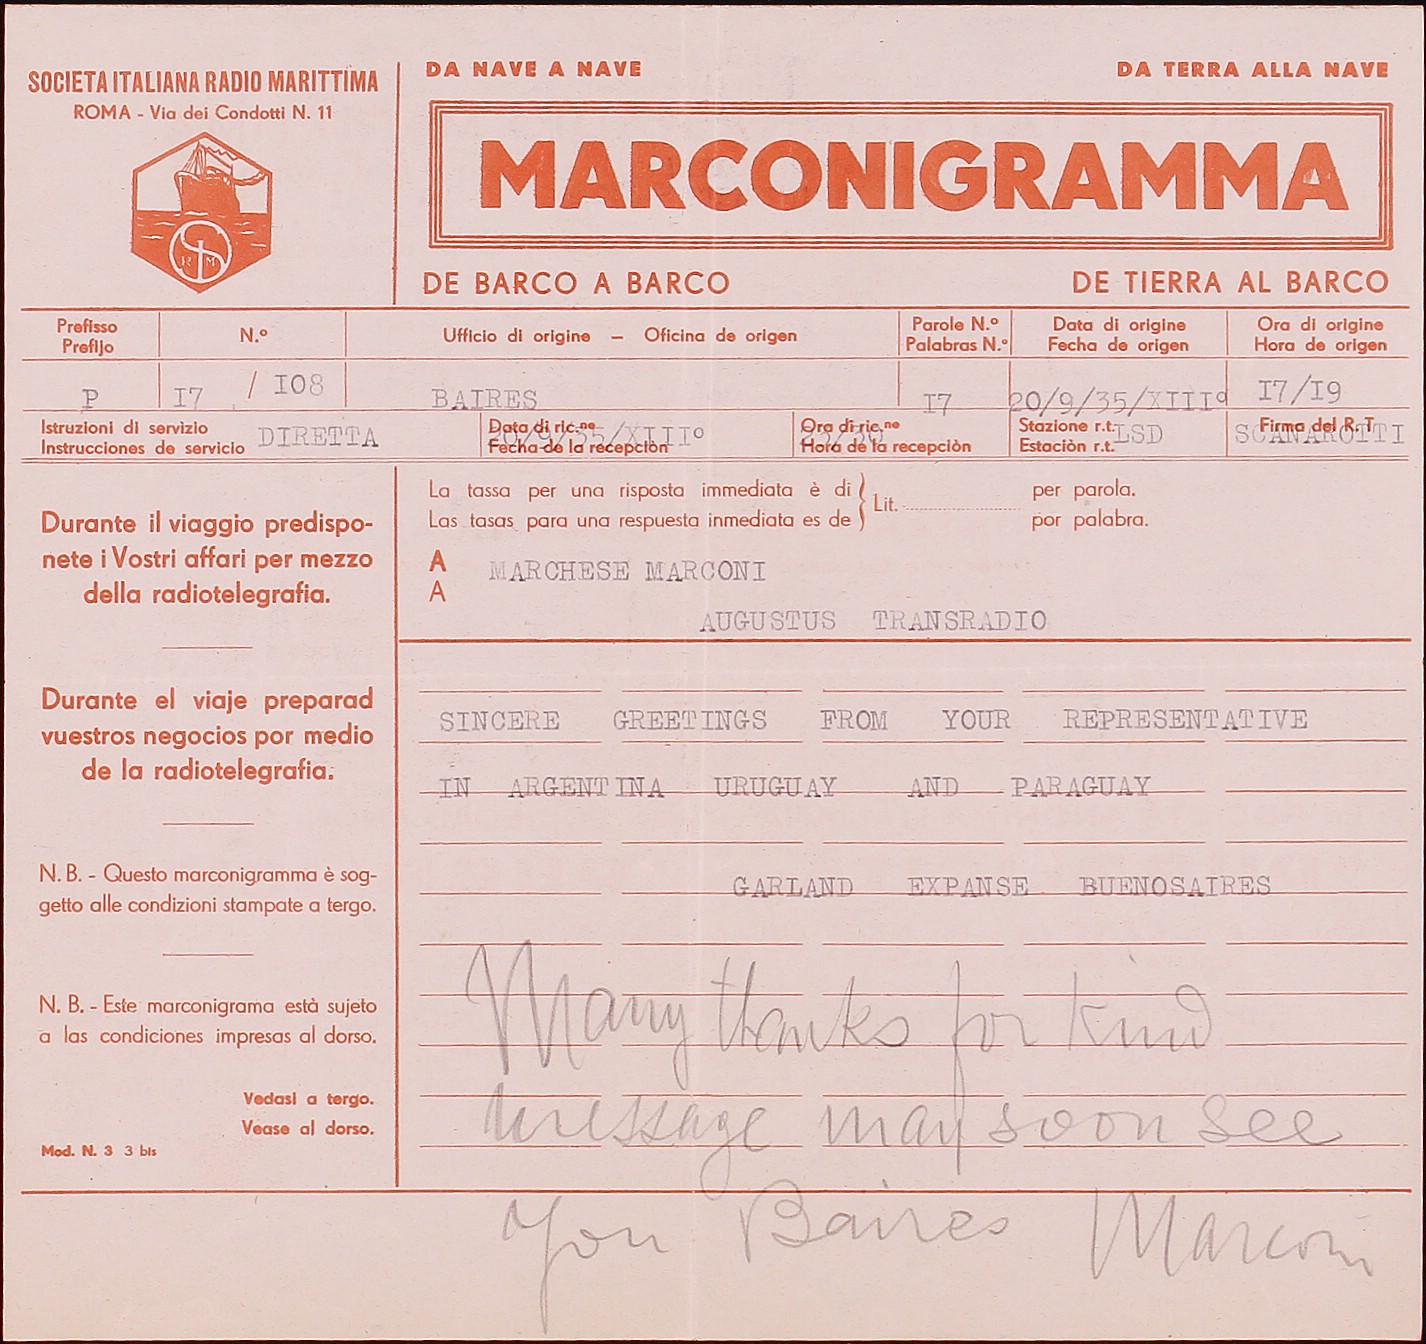 SOCIETA ITALIANA RADIO MARITTIMA
ROMA - Via dei Condotti N. 11
R M
DA NAVE A NAVE
DA TERRA ALLA NAVE
MARCONIGRAMMA
DE BARCO A BARCO
DE TIERRA AL BARCO
Prefisso
Prefijo
N.º
Ufficio di origine — Oficina de origen
Parole N.º
Palabras N.º
Data di origine
Fecha de origen
Ora di origine
Hora de origen
P
I7 / I08
BAIRES
I7
20/9/35/XIIIº
I7/I9
Istruzioni di servizio
Instrucciones de servicio
DIRETTA
Data di ric.ne
Fecha de la recepciòn
20/9/35/XIIIº
Ora di ric.ne
Hora de la recepciòn
Stazione r.t.
Estaciòn r.t.
LSD
Firma del R. T
SCANAROTTI
La tassa per una risposta immediata è di
Las tasas para una respuesta inmediata es de
Lit.
per parola.
por palabra.
A
A
MARCHESE MARCONI
AUGUSTUS TRANSRADIO
Durante il viaggio predispo-
nete i Vostri affari per mezzo
della radiotelegrafia.
Durante el viaje preparad
vuestros negocios por medio
de la radiotelegrafia.
N. B. - Questo marconigramma è sog-
getto alle condizioni stampate a tergo.
N. B. - Este marconigrama està sujeto
a las condiciones impresas al dorso.
Vedasi a tergo.
Vease al dorso.
Mod. N. 3 3 bis
SINCERE GREETINGS FROM YOUR REPRESENTATIVE
IN ARGENTINA URUGUAY AND PARAGUAY
GARLAND EXPANSE BUENOSAIRES
Many thanks for kind
message may soon see
you Baires Marconi